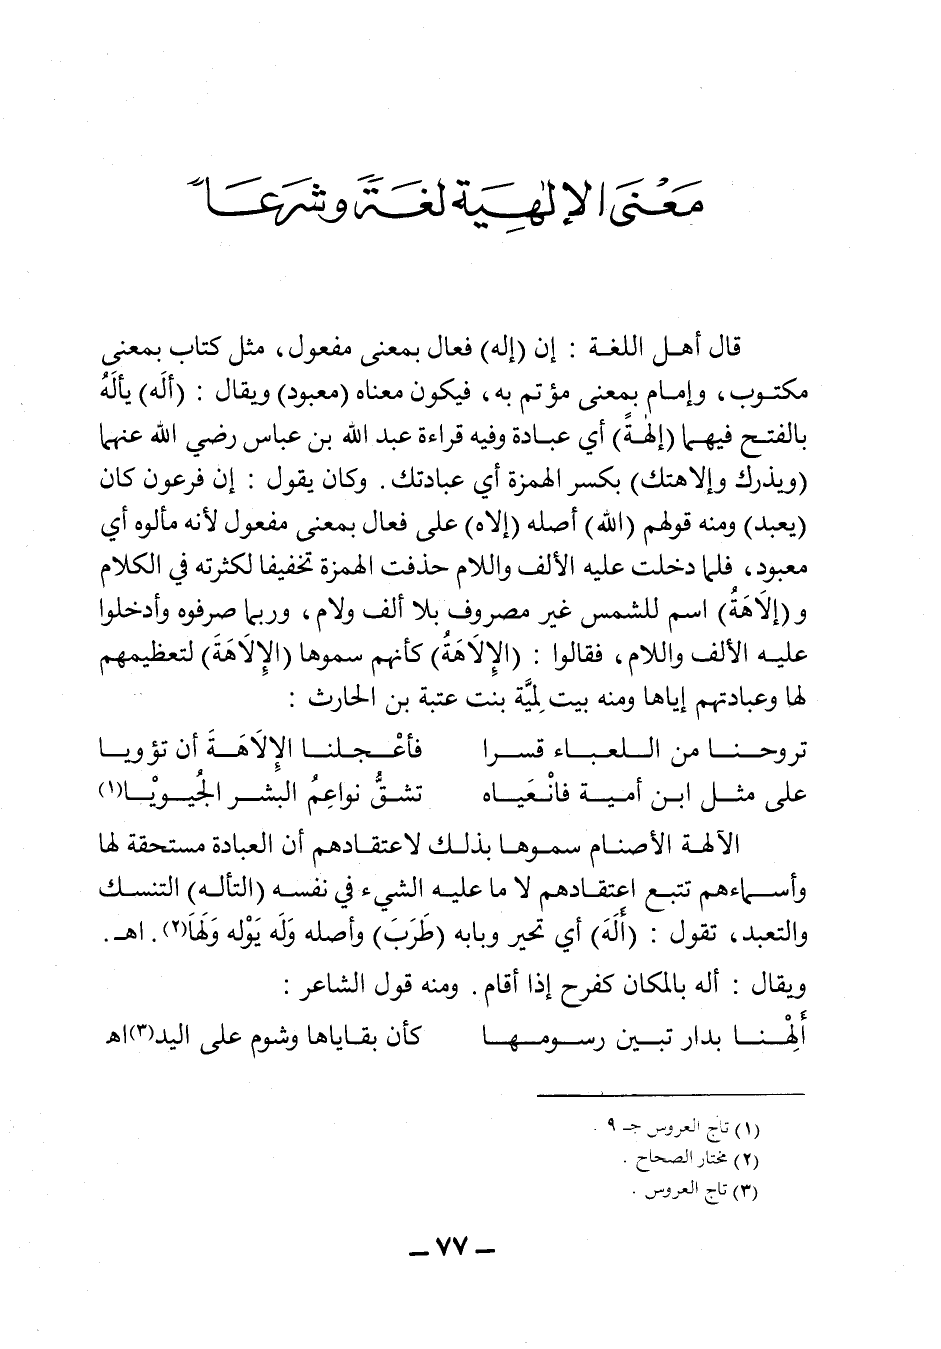 مَعْنَى الإلٰهِيَة لغَة وشَرعَاً
قال أهل اللغة : إن (إله) فعال بمعنى مفعول، مثل كتاب بمعنى
مكتوب، وإمام بمعنى مؤتم به، فيكون معناه (معبود) ويقال : (أَلَه) يألَهُ
بالفتح فيهما (إلٰهةً) أي عبادة وفيه قراءة عبد الله بن عباس رضي الله عنهما
(ويذرك وإلاهتك) بكسر الهمزة أي عبادتك . وكان يقول : إن فرعون كان
(يعبد) ومنه قولهم (الله) أصله (إلاه) على فعال بمعنى مفعول لأنه مألوه أي
معبود، فلما دخلت عليه الألف واللام حذفت الهمزة تخفيفا لكثرته في الكلام
و (إلَاهَةُ) اسم للشمس غير مصروف بلا ألف ولام، وربما صرفوه وأدخلوا
عليه الألف واللام، فقالوا : (الإِلَاهَةُ) كأنهم سموها (الإِلَاهَةَ) لتعظيمهم
لها وعبادتهم إياها ومنه بيت لِميَّة بنت عتبة بن الحارث :
تروحنا من اللعباء قسرا فأعْجلنا الإِلَاهَةَ أن تؤويا
على مثل ابن أمية فانْعَياه تشقُّ نواعِمُ البشر الجُيوبْا(١)
الآلهة الأصنام سموها بذلك لاعتقادهم أن العبادة مستحقة لها
وأسماءهم تتبع اعتقادهم لا ما عليه الشيء في نفسه (التأله) التنسك
والتعبد، تقول : (أَلَهَ) أي تحير وبابه (طَرَبَ) وأصله وَلَه يَوْله وَلَهَا(٢) . اهـ .
ويقال : أله بالمكان كفرح إذا أقام . ومنه قول الشاعر :
أَلِهْنا بدار تبين رسومها كأن بقاياها وشوم على اليد(٣)اهـ
(١) تاج العروس جـ ٩ .
(٢) مختار الصحاح .
(٣) تاج العروس .
– ٧٧ –